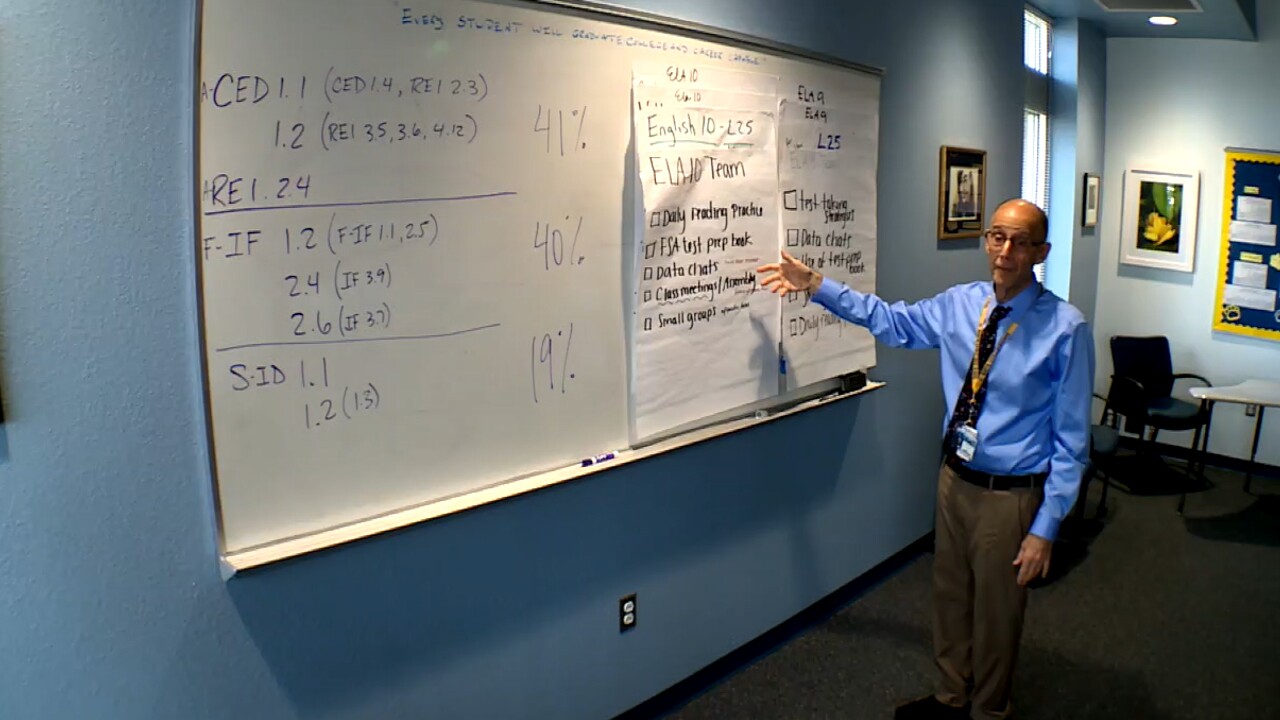 "EVERY STUDENT WILL GRADUATE COLLEGE AND CAREER
A-CED 1.1 (CED 1.4, REI 2.3)
1.2 (REI 3.5, 3.6, 4.12)
41%
AREI. 2.4
F-IF 1.2 (F-IF 1.1, 2.5)
2.4 (IF 3.9)
2.6 (IF 3.7)
40%
S-ID 1.1
1.2 (1.3)
19%
ELA 10
Ela 10
English 10 - L25
ELA 10 Team
Daily Reading Practice
FSA test prep book
Data chats
Class meetings/Assembly
Small groups
ELA 9
ELA 9
L25
test-taking
Strategies
Data chats
Use of test prep
book
Daily